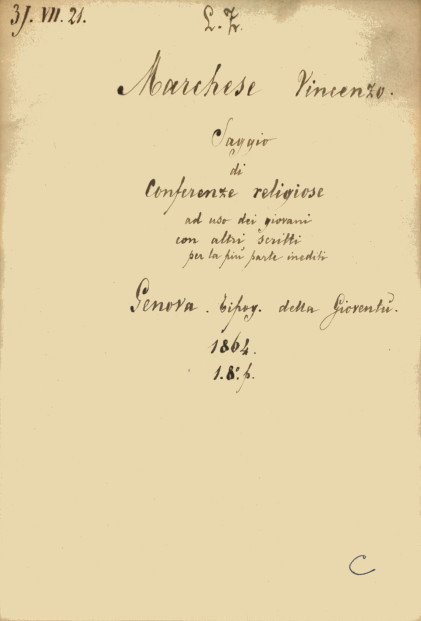 31. VII. 21.
L. Z.
Marchese Vincenzo.
Saggio
di
Conferenze religiose
ad uso dei giovani
con altri scritti
per la più parte inediti
Genova. Tipog. della Gioventù.
1864.
1. 8.° p.
C